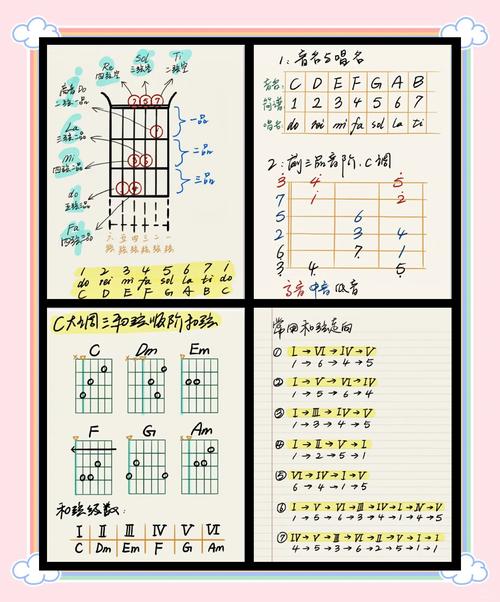 Re Sol Ti
四弦空 三弦空 二弦空
高音Do
二弦一品
La
三弦二品
Mi
四弦二品
do
五弦三品
Fa
四弦三品
② ⑤ ⑦
①
③ ⑥
① ④
一品
二品
三品
六弦 五弦 四弦 三弦 二弦 一弦
1 2 3 4 5 6 7 i
do rei mi fa sol la ti do
C D E F G A B C
1:音名与唱名
音名: C D E F G A B
简谱: 1 2 3 4 5 6 7
唱名: do rei mi fa sol la ti
2:前三品音阶.C调
3 4 5
7 1 2
5 6
2 3 4
6 7 1
3 4 5
高音 中音 低音
C大调三和弦顺阶和弦
C Dm Em
F G Am
和弦级数:
I II III IV V VI
C Dm Em F G Am
常用和弦走向
① I→VI→IV→V
1→6→4→5
② I→V→VI→IV
1→5→6→4
③ I→III→IV→V
1→3→4→5
④ I→II→V→I
1→2→5→1
⑤ VI→IV→I→V
6→4→1→5
⑥ I→V→VI→III→IV→I→IV→V
1→5→6→3→4→1→4→5
⑦ IV→V→III→VI→II→V→I→I
4→5→3→6→2→5→1→1